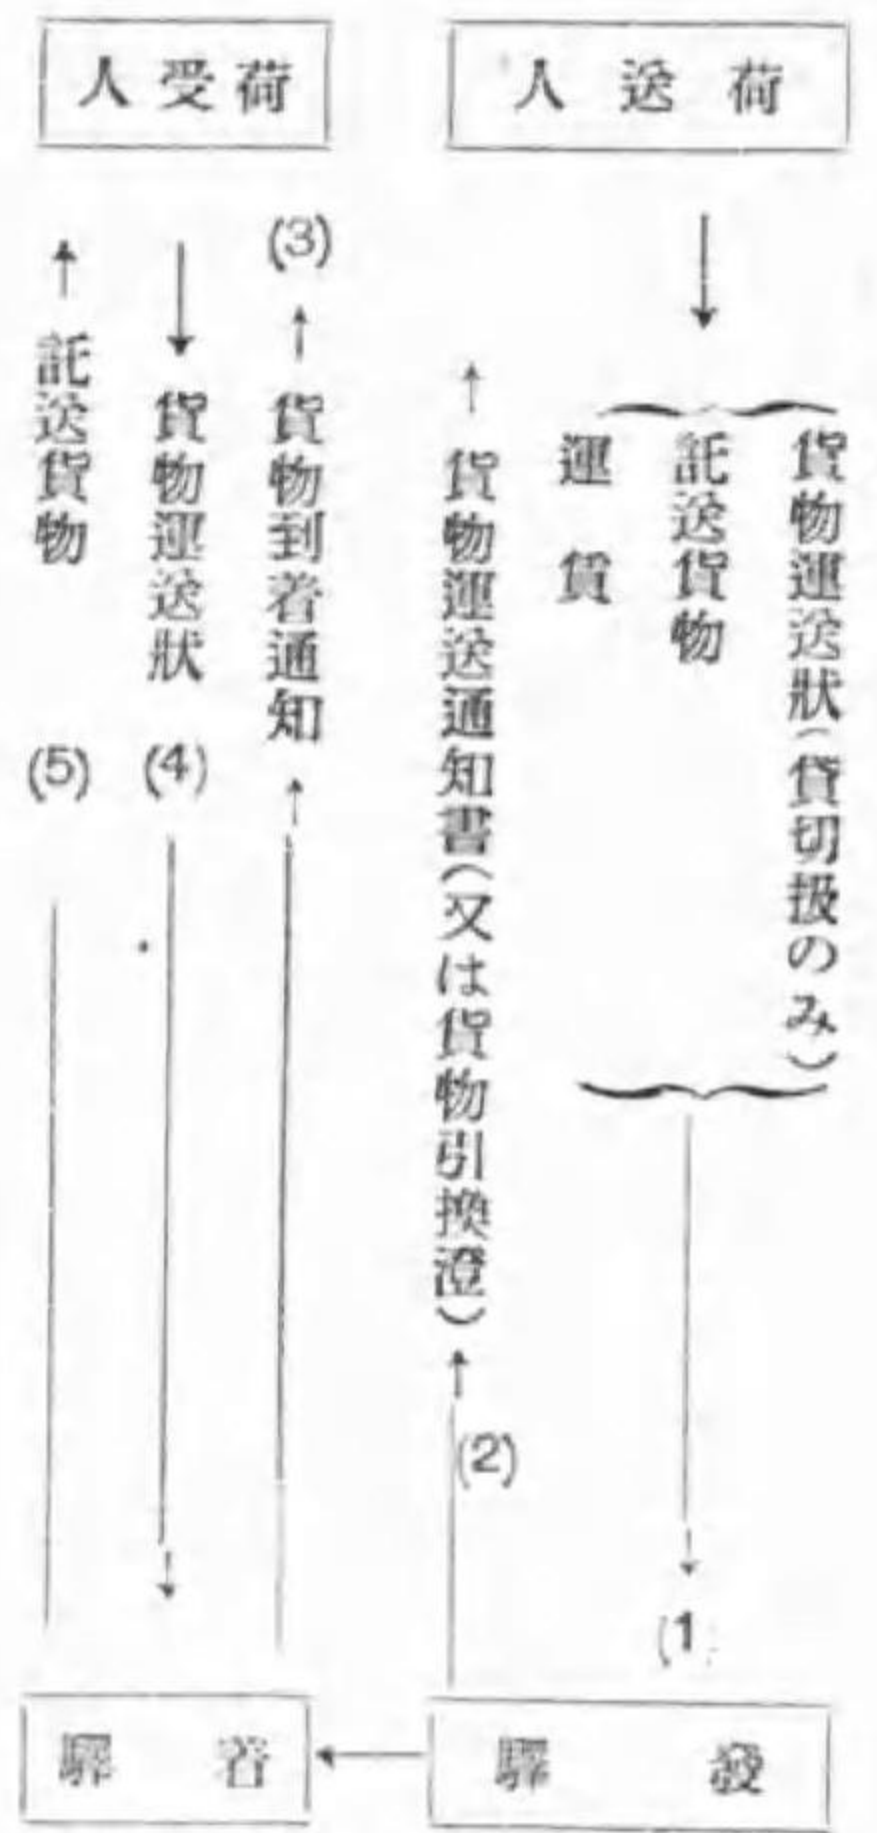 荷送人
貨物運送狀(貸切扱のみ)
託送貨物
運賃
(1)
貨物運送通知書(又は貨物引換證)
(2)
發驛
荷受人
(3)
貨物到着通知
貨物運送狀
(4)
託送貨物
(5)
着驛